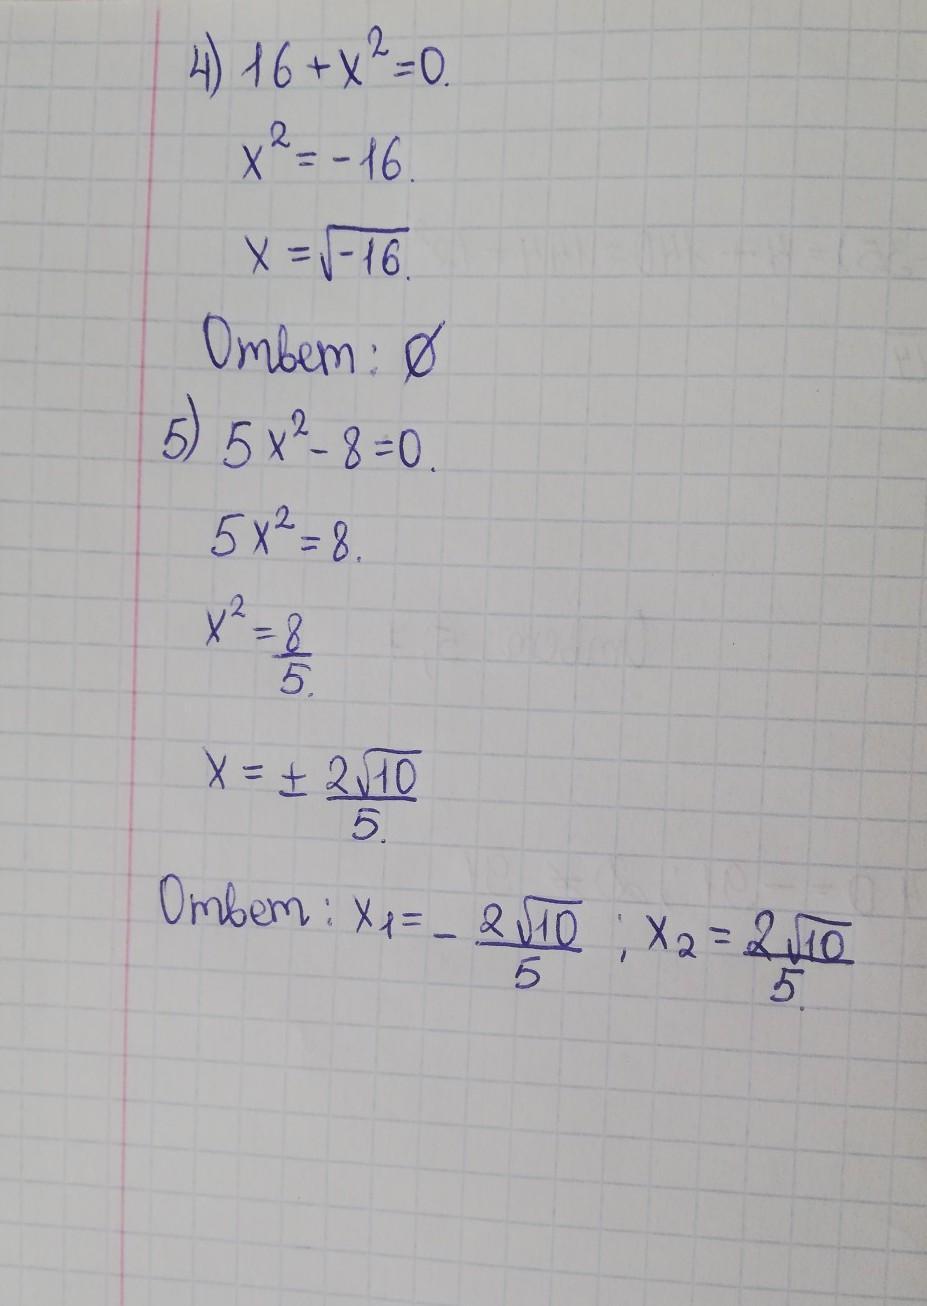 4) 16 + x² = 0.
x² = - 16.
x = √-16.
Ответ: ∅
5) 5x² - 8 = 0.
5x² = 8.
x² = 8/5.
x = ± 2√10/5.
Ответ: x₁ = - 2√10/5 ; x₂ = 2√10/5.